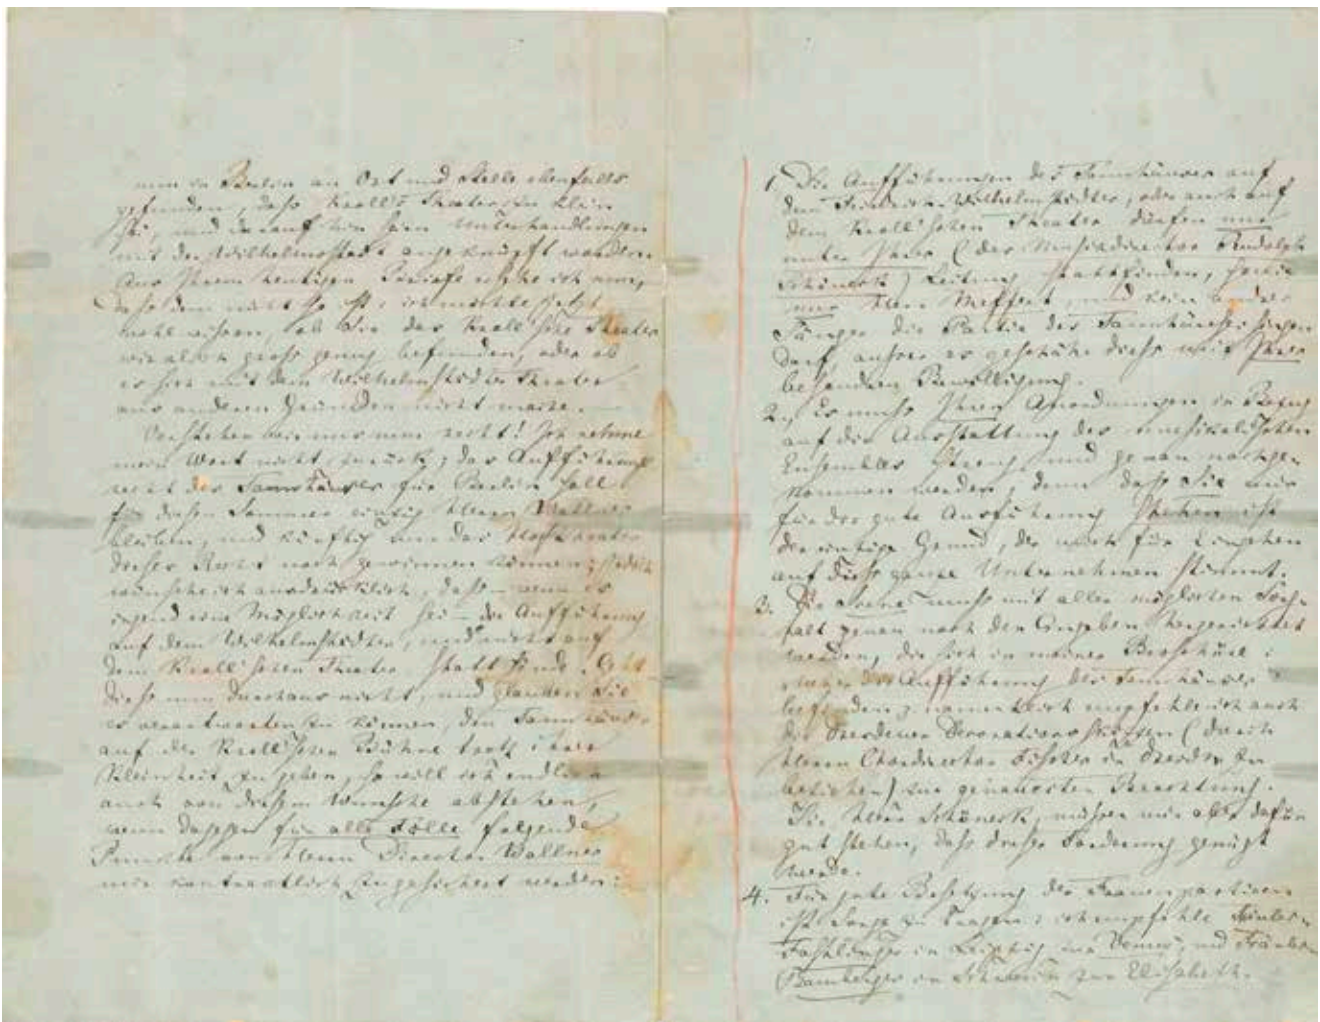 nun in Berlin an Ort und Stelle ebenfalls
gefunden, dass Kroll's Theater zu klein
sei, und darauf hin seien Unterhandlungen
mit der Wilhelmstadt angeknüpft worden.
Aus Ihrem heutigen Briefe ersehe ich nun,
dass dem nicht so ist: ich möchte jetzt
wohl wissen, ob Sie das Kroll'sche Theater
wirklich gross genug befunden, oder ob
es sich mit dem Wilhelmstädter Theater
aus anderen Gründen nicht mache. —
Verstehen wir uns nun recht! Ich nehme
mein Wort nicht zurück; das Aufführungs
recht des Tannhäuser für Berlin soll
für diesen Sommer einzig Herrn Wallner
bleiben, und künftig nur das Hoftheater
dieses Recht noch gewinnen können; jedoch
wünsche ich ausdrücklich, dass – wenn es
irgend eine Möglichkeit sei – die Aufführung
auf dem Wilhelmstädter, und nicht auf
dem Kroll'schen Theater statt finde. Geht
diess nun durchaus nicht, und glauben Sie
es verantworten zu können, den Tannhäuser
auf der Kroll'schen Bühne trotz ihrer
Kleinheit, zu geben, so will ich endlich
auch von diesem Wunsche abstehen,
wenn dagegen für alle Fälle folgende
Punkte von Herrn Director Wallner
mir contractlich zugesichert werden:
1. Die Aufführungen des Tannhäuser auf
dem Friedrich-Wilhelmstädter, oder auch auf
dem Kroll'schen Theater dürfen nur
unter Ihrer (des Musikdirector Rudolph
Schöneck) Leitung stattfinden, sowie
nur Herr Meffert, und kein andrer
Sänger die Partie des Tannhäuser singen
darf, ausser es geschähe diess mit Ihrer
besondren Bewilligung.
2., Es muss Ihren Anordnungen in Bezug
auf die Ausstattung des musikalischen
Ensembles streng und genau nachge-
kommen werden, denn dass Sie mir
für die gute Ausführung stehen ist
der einzige Grund, der mich für Eingehen
auf diess ganze Unternehmen stimmt.
3. Die Scene muss mit aller möglichsten Sorg-
falt genau nach den Angaben hergerichtet
werden, die sich in meiner Broschüre:
über die Aufführung des Tannhäuser
befinden; namentlich empfehle ich auch
die Dresdener Decorationsskizzen (durch
Herrn Chordirector Fischer in Dresden zu
beziehen) zur genauesten Beachtung.
Sie, Herr Schöneck, müssen mir also dafür
gut stehen, dass dieser Forderung genügt
werde.
4. Für gute Besetzung der Frauenpartieen
ist Sorge zu tragen: ich empfehle Fräulein
in Leipzig zur Venus, und Fräulein
Bamberger in Schwerin zur Elisabeth.